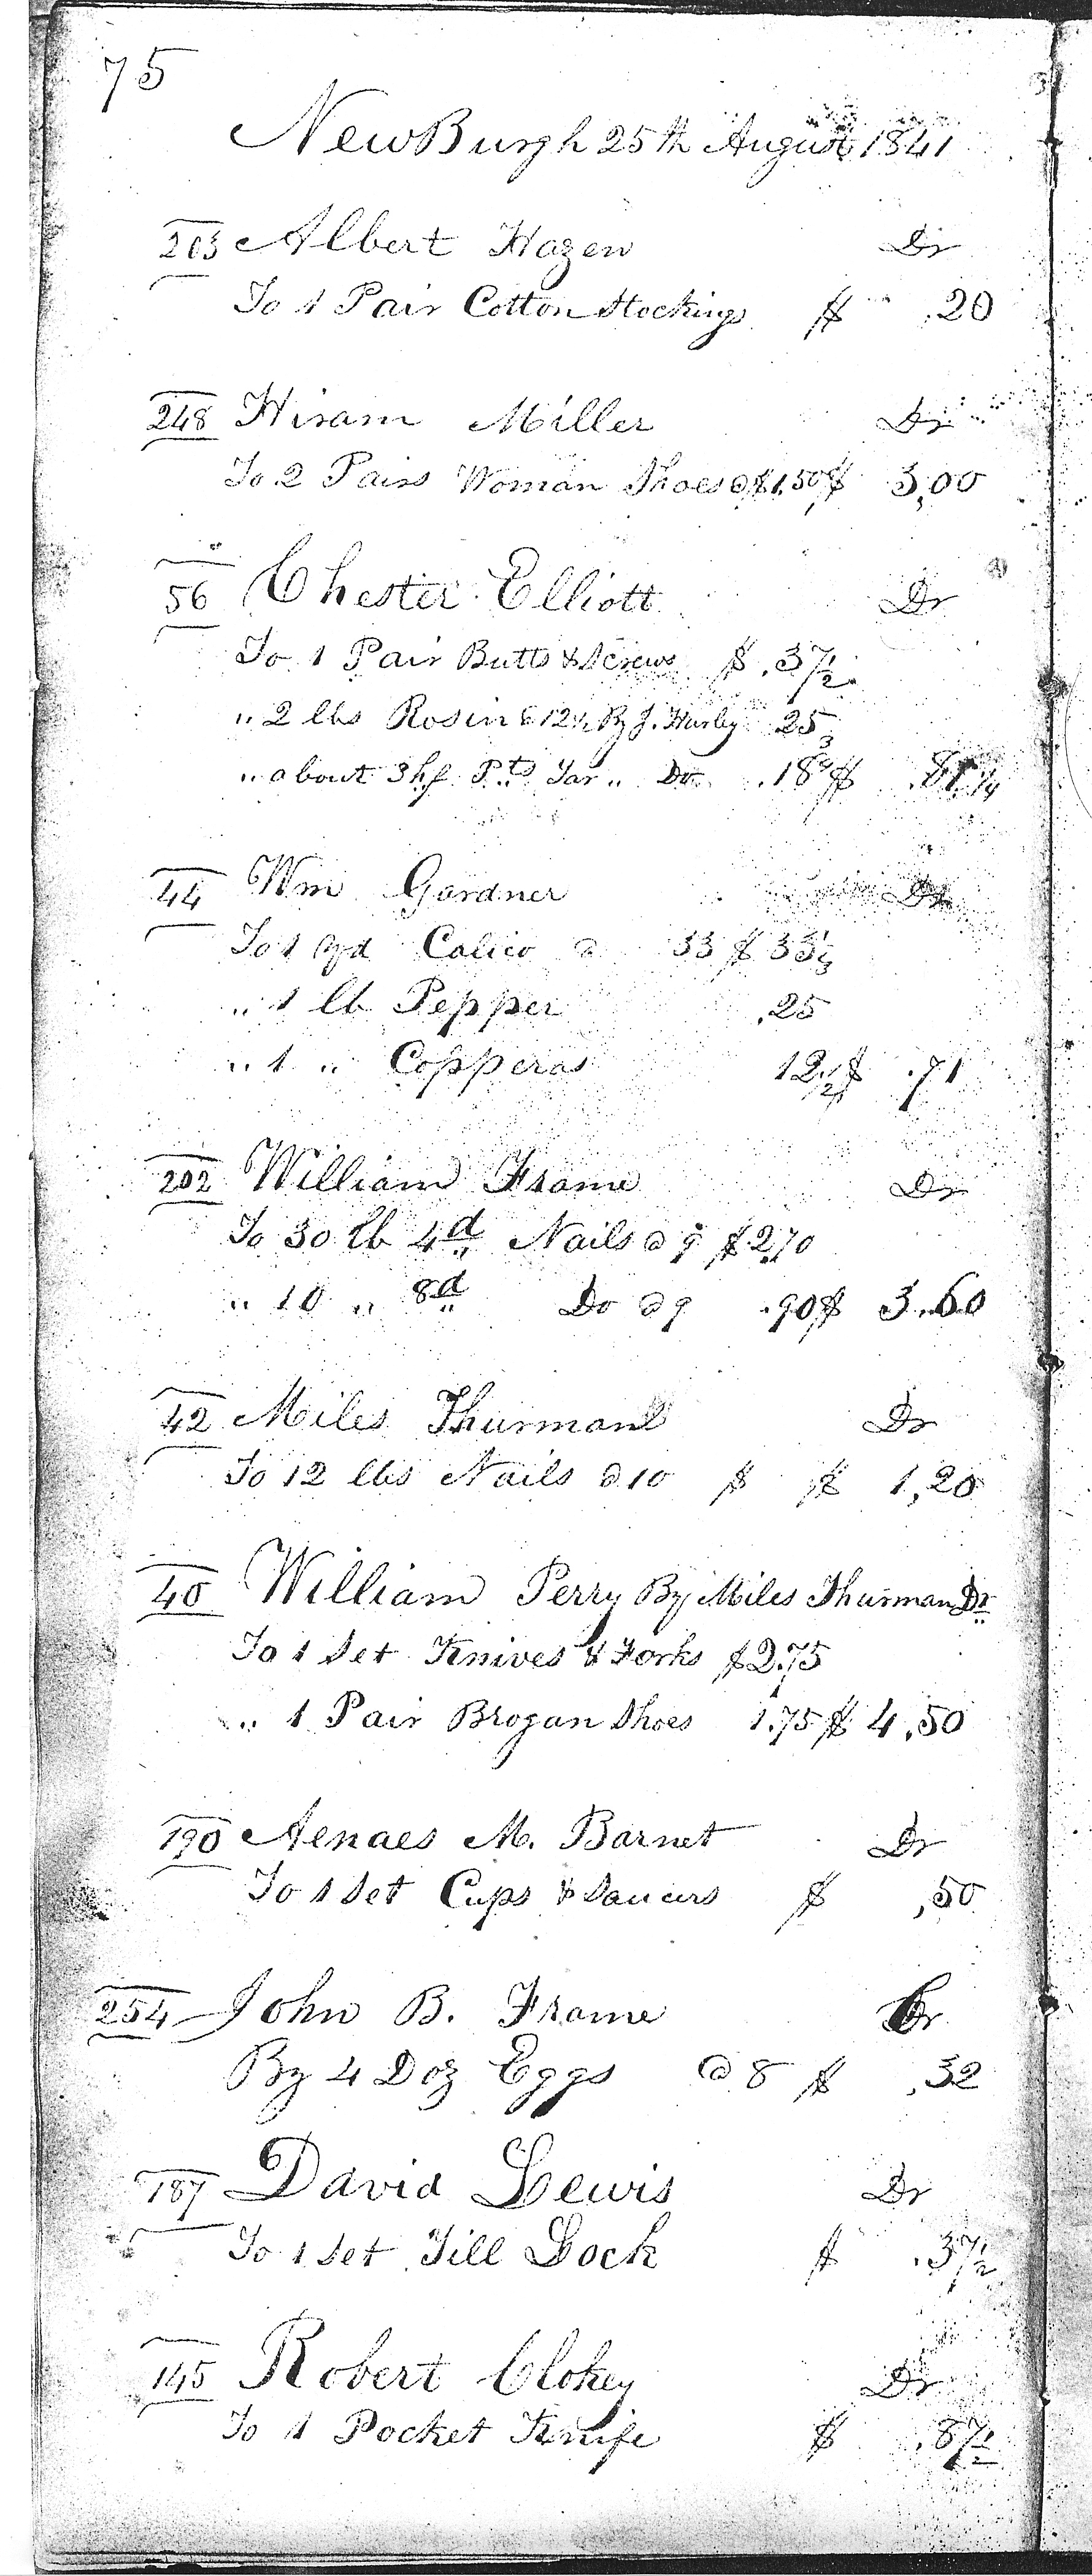 75
NewBurgh 25th August 1841
203 Albert Hazen Dr
To 1 Pair Cotton Stockings $ .20
248 Hiram Miller Dr
To 2 Pairs Woman Shoes @ $1,50 $ 3,00
56 Chester Elliott Dr
To 1 Pair Butts & Screws $ .37½
" 2 lbs Rosin @ 12½ By J. Hurley 25
" about 3 hf Pts Tar " Do .18¾ $ .81¼
44 Wm Gardner Dr
To 1 yd Calico @ 33 $ 33⅓
" 1 lb Pepper .25
" 1 " Copperas 12½ $ .71
202 William Frame Dr
To 30 lb 4d Nails @ 9 $ 2.70
" 10 " 8d Do @ 9 .90 $ 3.60
42 Miles Thurman Dr
To 12 lbs Nails @ 10 $ $ 1,20
40 William Perry By Miles Thurman Dr
To 1 Set Knives & Forks $ 2.75
" 1 Pair Brogan Shoes 1.75 $ 4.50
190 Aenaes M. Barnet Dr
To 1 Set Cups & Saucers $ ,50
254 John B. Frame Cr
By 4 Doz Eggs @ 8 $ .32
187 David Lewis Dr
To 1 Set Till Lock $ .37½
145 Robert Clokey Dr
To 1 Pocket Knife $ .87½